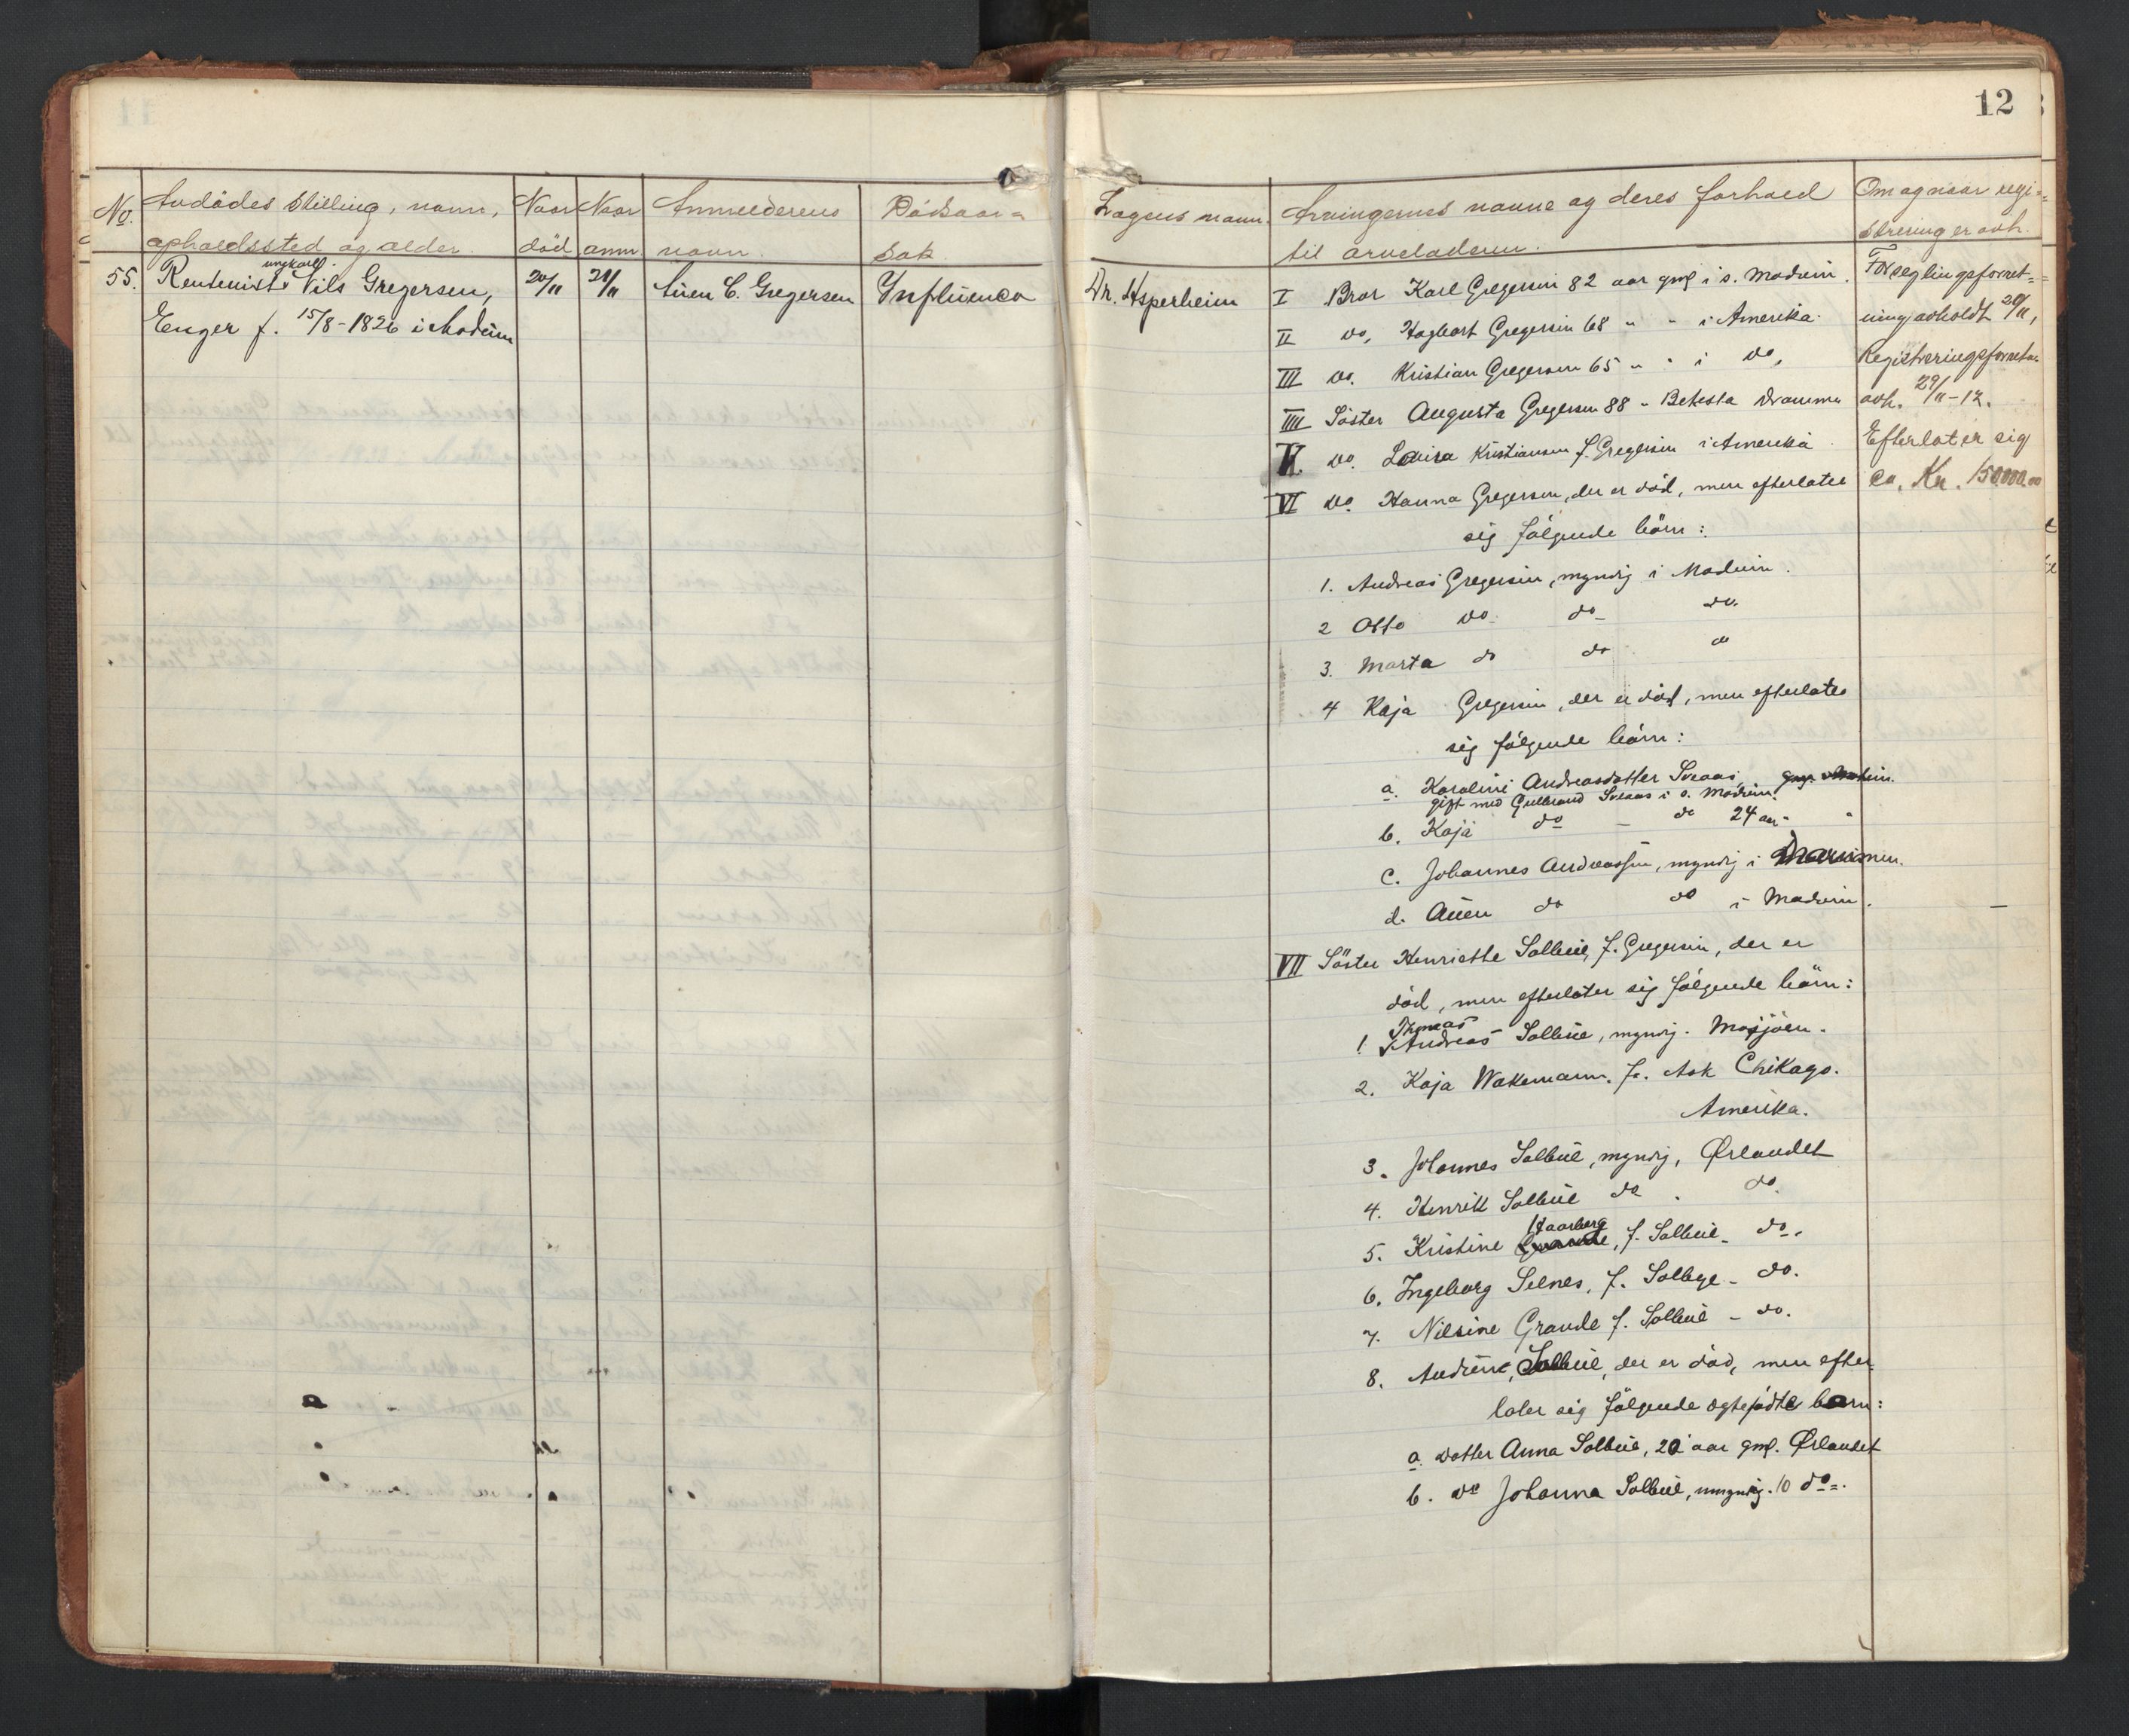 12
No. Avdödes stilling, navn, opholdssted og alder.
Naar död
Naar anm
Anmelderens navn
Dödsaarsak
55. Rentenist ungkarl Nils Gregersen,
Enger f. 15/8-1826 i Modum
20/11
21/11
Auen C. Gregersen
Influenca
Lægens navn.
Arvingernes navne og deres forhold
til arveladeren.
Om og naar regi-
strering er avh.
Dr. Asperheim
I Bror Karl Gregersen 82 aar gml i s. Modum.
II do, Hagbart Gregersen 68 " - i Amerika
III do. Kristian Gregersen 65 " " i do,
IIII Söster Augusta Gregersen 88 " Betesta Drammen
V. do. Lovisa Kristiansen f. Gregersen i Amerika
VI do. Hanna Gregersen, der er död, men efterlater
sig fölgende börn:
1. Andreas Gregersen, myndig i Modum.
2 Otto do. do. do.
3. Marta do do do
4 Kaja Gregersen, der er död, men efterlater
sig fölgende börn:
a. Karoline Andreasdatter Sveaas,
gift med Gulbrand Sveaas i s. Modum.
b. Kaja do - do 24 aar " "
c. Johannes Andreassen, myndig i Drammen.
d. Auen do do i Modum.
VII Söster Henriette Solbue, f. Gregersen, der er
död, men efterlater sig fölgende börn:
Thomas
1. Andreas Solbue, myndig. Mosjöen.
2. Kaja Wakemann. f. Ask Chikago.
Amerika.
3. Johannes Solbue, myndig, Ørlandet
4. Henrik Solbue do . do.
Haarberg
5. Kristine Grande, f. Solbue - do.
6. Ingeborg Selnes, f. Solbye - do.
7. Nilsine Grande f. Solbue - do.
8. Andrine, Solbue, der er död, men efter-
later sig fölgende egtefödte barn:
a. datter Anna Solbue, 20 aar gml. Ørlandet
b. do Johanna Solbue, umyndig. 10 do.
Forseglingsforret-
ning avholdt 20/11,
Registreringsforretn.
avh. 29/11-12.
Efterlater sig
ca. Kr. 150000.00